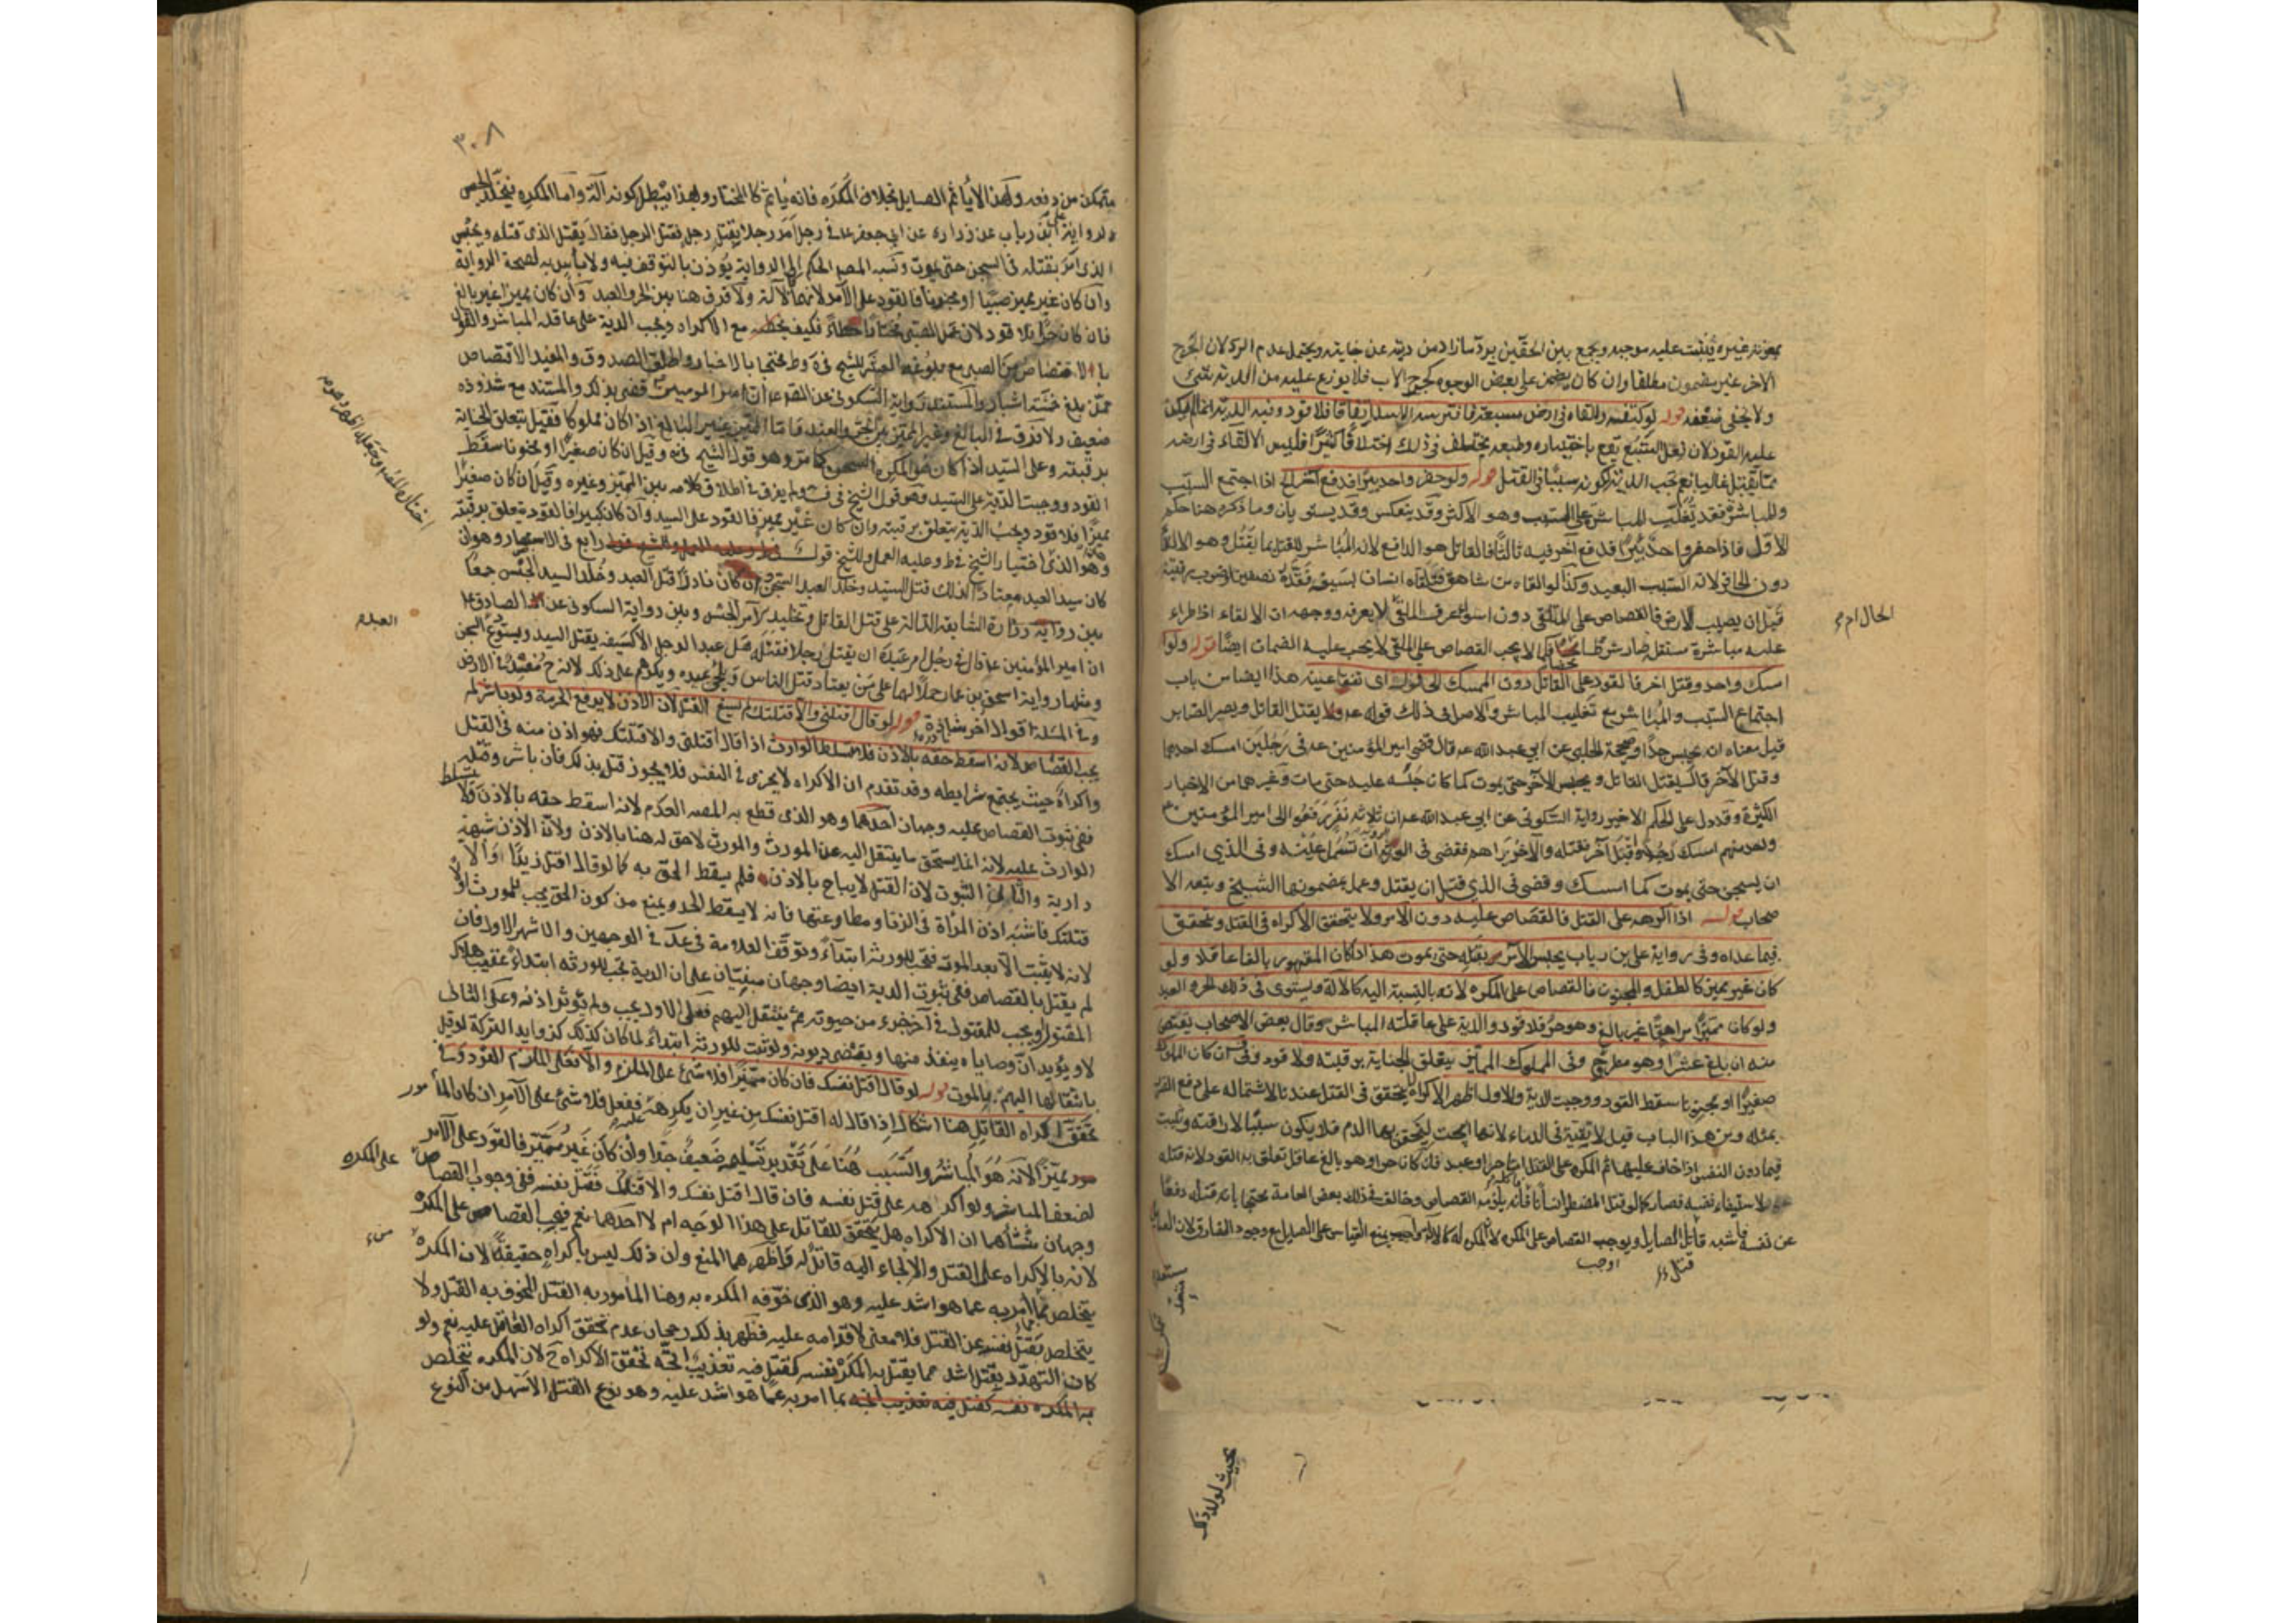 بمعونة غيره فيثبت عليه موجبه ويجمع بين الحقين برد ما زاد من ديته عن جنايته ويحتمل عدم الرد لان الجرح
الآخر غير مضمون مطلقا وان كان يضمن على بعض الوجوه كجرح الاب فلا يوزع عليه من الدية شيئ
ولا يخفى ضعفه قوله لو كتفه والقاه في ارض مسبعة فافترسه الاسد اتفاقا فلا قود وفيه الدية انما لم يكن
عليه القود لان فعل السبع يقع باختياره وطبعه يختلف في ذلك اختلافا كثيرا فليس الالقاء في ارضه
مما يقتل غالبا نعم تجب الدية لكونه سببا في القتل قوله ولو حفر واحد بئرا فدفع آخر الخ اذا اجتمع السبب
والمباشرة فقد تغلب المباشر على السبب وهو الاكثر وقد ينعكس وقد يستويان وما ذكره هنا حكم
الاول فاذا حفر واحد بئرا فدفع آخر فيه ثالثا فالقاتل هو الدافع لانه المباشر للقتل بما يقتل وهو الالقاء
دون الحافر لانه السبب البعيد وكذا لو القاه من شاهق فتلقاه انسان بسيف فقده نصفين او ضرب رقبته
قبل ان يصيب الارض فالقصاص على الملقى دون سواء عرف الملقي لا يعرفه ووجهه ان الالقاء اذا طراء
الحال ام
عليه مباشرة مستقل صار شرطا محضا فكما لا يجب القصاص على الملقي لا يجب عليه الضمان ايضا قوله ولو
امسك واحد وقتل آخر فالقود على القاتل دون الممسك الى قوله اي تفقأ عينه هذا ايضا من باب
اجتماع السبب والمباشر مع تغليب المباشر والاصل في ذلك قوله ع يقتل القاتل ويصبر الصابر
قيل معناه انه يحبس جدا وصحيحة الحلبي عن ابي عبد الله ع قال قضى امير المؤمنين ع في رجلين امسك احدهما
وقتل الآخر قال يقتل القاتل ويحبس الآخر حتى يموت كما كان حبسه عليه حتى مات وغيرهما من الاخبار
الكثيرة وقد دل على الحكم الاخير رواية السكوني عن ابي عبد الله ع ان ثلاثة نفر رفعوا الى امير المؤمنين ع
واحد منهم امسك رجلا واقبل آخر فقتله والآخر يراهم فقضى في ان تسمل عينه وفي الذي امسك
ان يسجن حتى يموت كما امسك وقضى في الذي قتل ان يقتل وعمل بمضمونها الشيخ وتبعه الا
صحاب قوله اذا اكرهه على القتل فالقصاص عليه دون الآمر ولا يتحقق الاكراه في القتل ويتحقق
فيما عداه وفي رواية علي بن رياب يحبس الآمر بقتله حتى يموت هذا اذا كان المقهور بالغا عاقلا ولو
كان غير مميز كالطفل والمجنون فالقصاص على المكره لانه بالنسبة اليه كالآلة ويستوى في ذلك الحر والعبد
ولو كان مميزا مراهقا غير بالغ وهو حر فلا قود والدية على عاقلته المباشر وقال بعض الاصحاب يقتص
منه ان بلغ عشرا وهو مطرح وفي المملوك المميز يتعلق الجناية برقبته ولا قود وفي ان كان المملوك
صغيرا او مجنونا سقط القود ووجبت الدية والاول اظهر الاكراه لا يتحقق في القتل عندنا لاشتماله على دفع الضرر
بمثله ومن هذا الباب قيل لا تقية في الدماء لانها ابيحت ليحقن بها الدم فلا يكون سببا لاراقته ويثبت
فيما دون النفس اذا خاف عليها ثم المكره على القتل اما حر او عبد فان كان حرا وهو بالغ عاقل تعلق به القود لانه قتله
لاستبقاء نفسه فصار كما لو قتل المضطر انسانا فاكله فانه يلزمه القصاص وخالف في ذلك بعض العامة محتجا بانه قتله دفعا
عن نفسه فاشبه قاتل الصايل ويوجب القصاص على المكره يمنع القياس على الصايل مع وجود الفارق لان الصايل
قتل
اوجب
بحيث لولا ذكر
٣٠٨
متمكن من دفعه ولهذا لا يأثم الصايل بخلاف المكره فانه يأثم كالمختار وبهذا يبطل كونه آلة واما المكره فيخلد الحبس
لرواية علي بن رياب عن زرارة عن ابي جعفر ع في رجل امر رجلا بقتل رجل فقتل الرجل فقال يقتل الذي قتله ويحبس
الذي امر بقتله في السجن حتى يموت ونسبه المصنف الحكم الى الرواية يؤذن بالتوقف فيه ولا بأس به لصحة الرواية
وان كان غير مميز صبيا او مجنونا فالقود على الآمر لانهما كالآلة ولا فرق هنا بين الحر والعبد وان كان مميزا غير بالغ
فان كان حرا فلا قود لان عمل الصبي مختارا خطاء فكيف يخطئه مع الاكراه ويجب الدية على عاقلة المباشر والقول
بالاقتصاص من الصبي مع بلوغه العشر للشيخ في ية وط محتجا بالاخبار واطلق الصدوق والمفيد الاقتصاص
ممن بلغ خمسة اشبار والمستند رواية السكوني عن الصادق ع ان امير المومنين ع قضى بذلك والمستند مع شذوذه
ضعيف ولا فرق في البالغ وغير المميز بين الحر والعبد فاما المميز غير البالغ اذا كان مملوكا فقيل يتعلق الجناية
برقبته وعلى السيد اذا كان هو المكره السجن كما مر وهو قول الشيخ في ية وقيل ان كان صغيرا او مجنونا سقط
القود ووجبت الدية على السيد وهو قول الشيخ في ف ولم يفرق في اطلاق كلامه بين المميز وغيره وقيل ان كان صغيرا
مميزا فلا قود ويجب الدية يتعلق برقبته وان كان غير مميز فالقود على السيد وان كان كبيرا فالقود متعلق برقبته
وهذا الذي اختيار الشيخ في ط وعليه العمل وللشيخ قول رابع في الاستبصار وهو ان
كان سيد العبد معتادا لذلك قتل السيد وخلد العبد السجن وان كان نادرا قتل العبد وخلد السيد الحبس جمعا
بين رواية زرارة السابقة الدالة على قتل القاتل وتخليد الآمر الحبس وبين رواية السكوني عن الصادق ع
العبد
ان امير المؤمنين ع قال في رجل امر عبده ان يقتل رجلا فقتله هل عبد الرجل الا كسيفه يقتل السيد ويستودع السجن
ومثلها رواية اسحق بن عمار حملا لها على من يعتاد قتل الناس ويلجئ عبده ويكرههم على ذلك لانه ح مفسد في الارض
وفي المسئلة اقوال اخر شاذة قوله لو قال اقتلني والا قتلتك لم يسغ القتل لان الاذن لا يرفع الحرمة ولو باشر لم
يجب القصاص لانه اسقط حقه بالاذن فلا يتسلط الوارث اذا قال اقتلني والا قتلتك فهو اذن منه في القتل
واكراه حيث يجتمع شرايطه وقد تقدم ان الاكراه لا يجزى في النفس فلا يجوز قتل بذلك فان باشر وقتله
ففي ثبوت القصاص عليه وجهان احدهما وهو الذي قطع به المصنف العدم لانه اسقط حقه بالاذن فلا يتسلط
الوارث عليه لانه انما يستحق ما ينتقل اليه عن المورث والمورث لا حق له هنا بالاذن ولانه الاذن شبهة
دارية والثاني الثبوت لان القتل لا يباح بالاذن فلم يسقط الحق به كما لو قال اقتل زيدا والا
قتلتك فاشبه اذن المرأة في الزنا ومطاوعتها فانه لا يسقط الحد ويمنع من كون الحق يجب للمورث اولا
لانه لا يثبت الا بعد الموت فتجب للورثة ابتداء وتوقف العلامة في عد في الوجهين والاشهر الاول فان
لم يقتل بالقصاص ففي ثبوت الدية ايضا وجهان مبنيان على ان الدية تجب للورثة ابتداء عقيب هلاك
المقتول او يجب للمقتول في آخر جزء من حيوته ثم ينتقل اليهم فعلى الاول يجب ولم يؤثر اذنه وعلى الثاني
لا ويؤيد ان وصاياه ينفذ منها ويقضى ديونه ولو ثبت للورثة ابتداء لما كان كذلك كزوايد التركة لو قيل
بانتقالها اليهم بالموت قوله لو قال اقتل نفسك فان كان مميزا فلا شئ على الملزم والا فعلى الملزم القود وفي
تحقق اكراه القاتل هنا اشكال اذا قال له اقتل نفسك من غير ان يكرهه عليه ففعل فلا شئ على الآمر ان كان المأمور
مميزا لانه هو المباشر والسبب هنا على تقدير تسليمه ضعيف جدا وان كان غير مميز فالقود على الآمر
لضعف المباشر ولو اكرهه على قتل نفسه فان قال اقتل نفسك والا قتلتك فقتل نفسه ففي وجوب القصاص
على المكره
وجهان منشأهما ان الاكراه هل يتحقق للقاتل على هذا الوجه ام لا احدهما نعم فيجب القصاص على المكره
لانه بالاكراه على القتل والالجاء اليه قاتل له فاظهرهما المنع وان ذلك ليس باكراه حقيقة لان المكره
من
يتخلص بما امر به عما هو اشد عليه وهو الذي خوفه المكره به وهنا المأمور به القتل المخوف به القتل ولا
يتخلص بقتل نفسه عن القتل فلا معنى لاقدامه عليه فظهر بذلك رجحان عدم تحقق اكراه العاقل عليه نعم ولو
كان التهدد بقتل اشد مما يقتل به المكره نفسه كقتل فيه تعذيب اتجه تحقق الاكراه ح لان المكره يتخلص
به المكره نفسه كقتل فيه تعذيب اتجه بما امر به عما هو اشد عليه وهو نوع القتل الاسهل من النوع